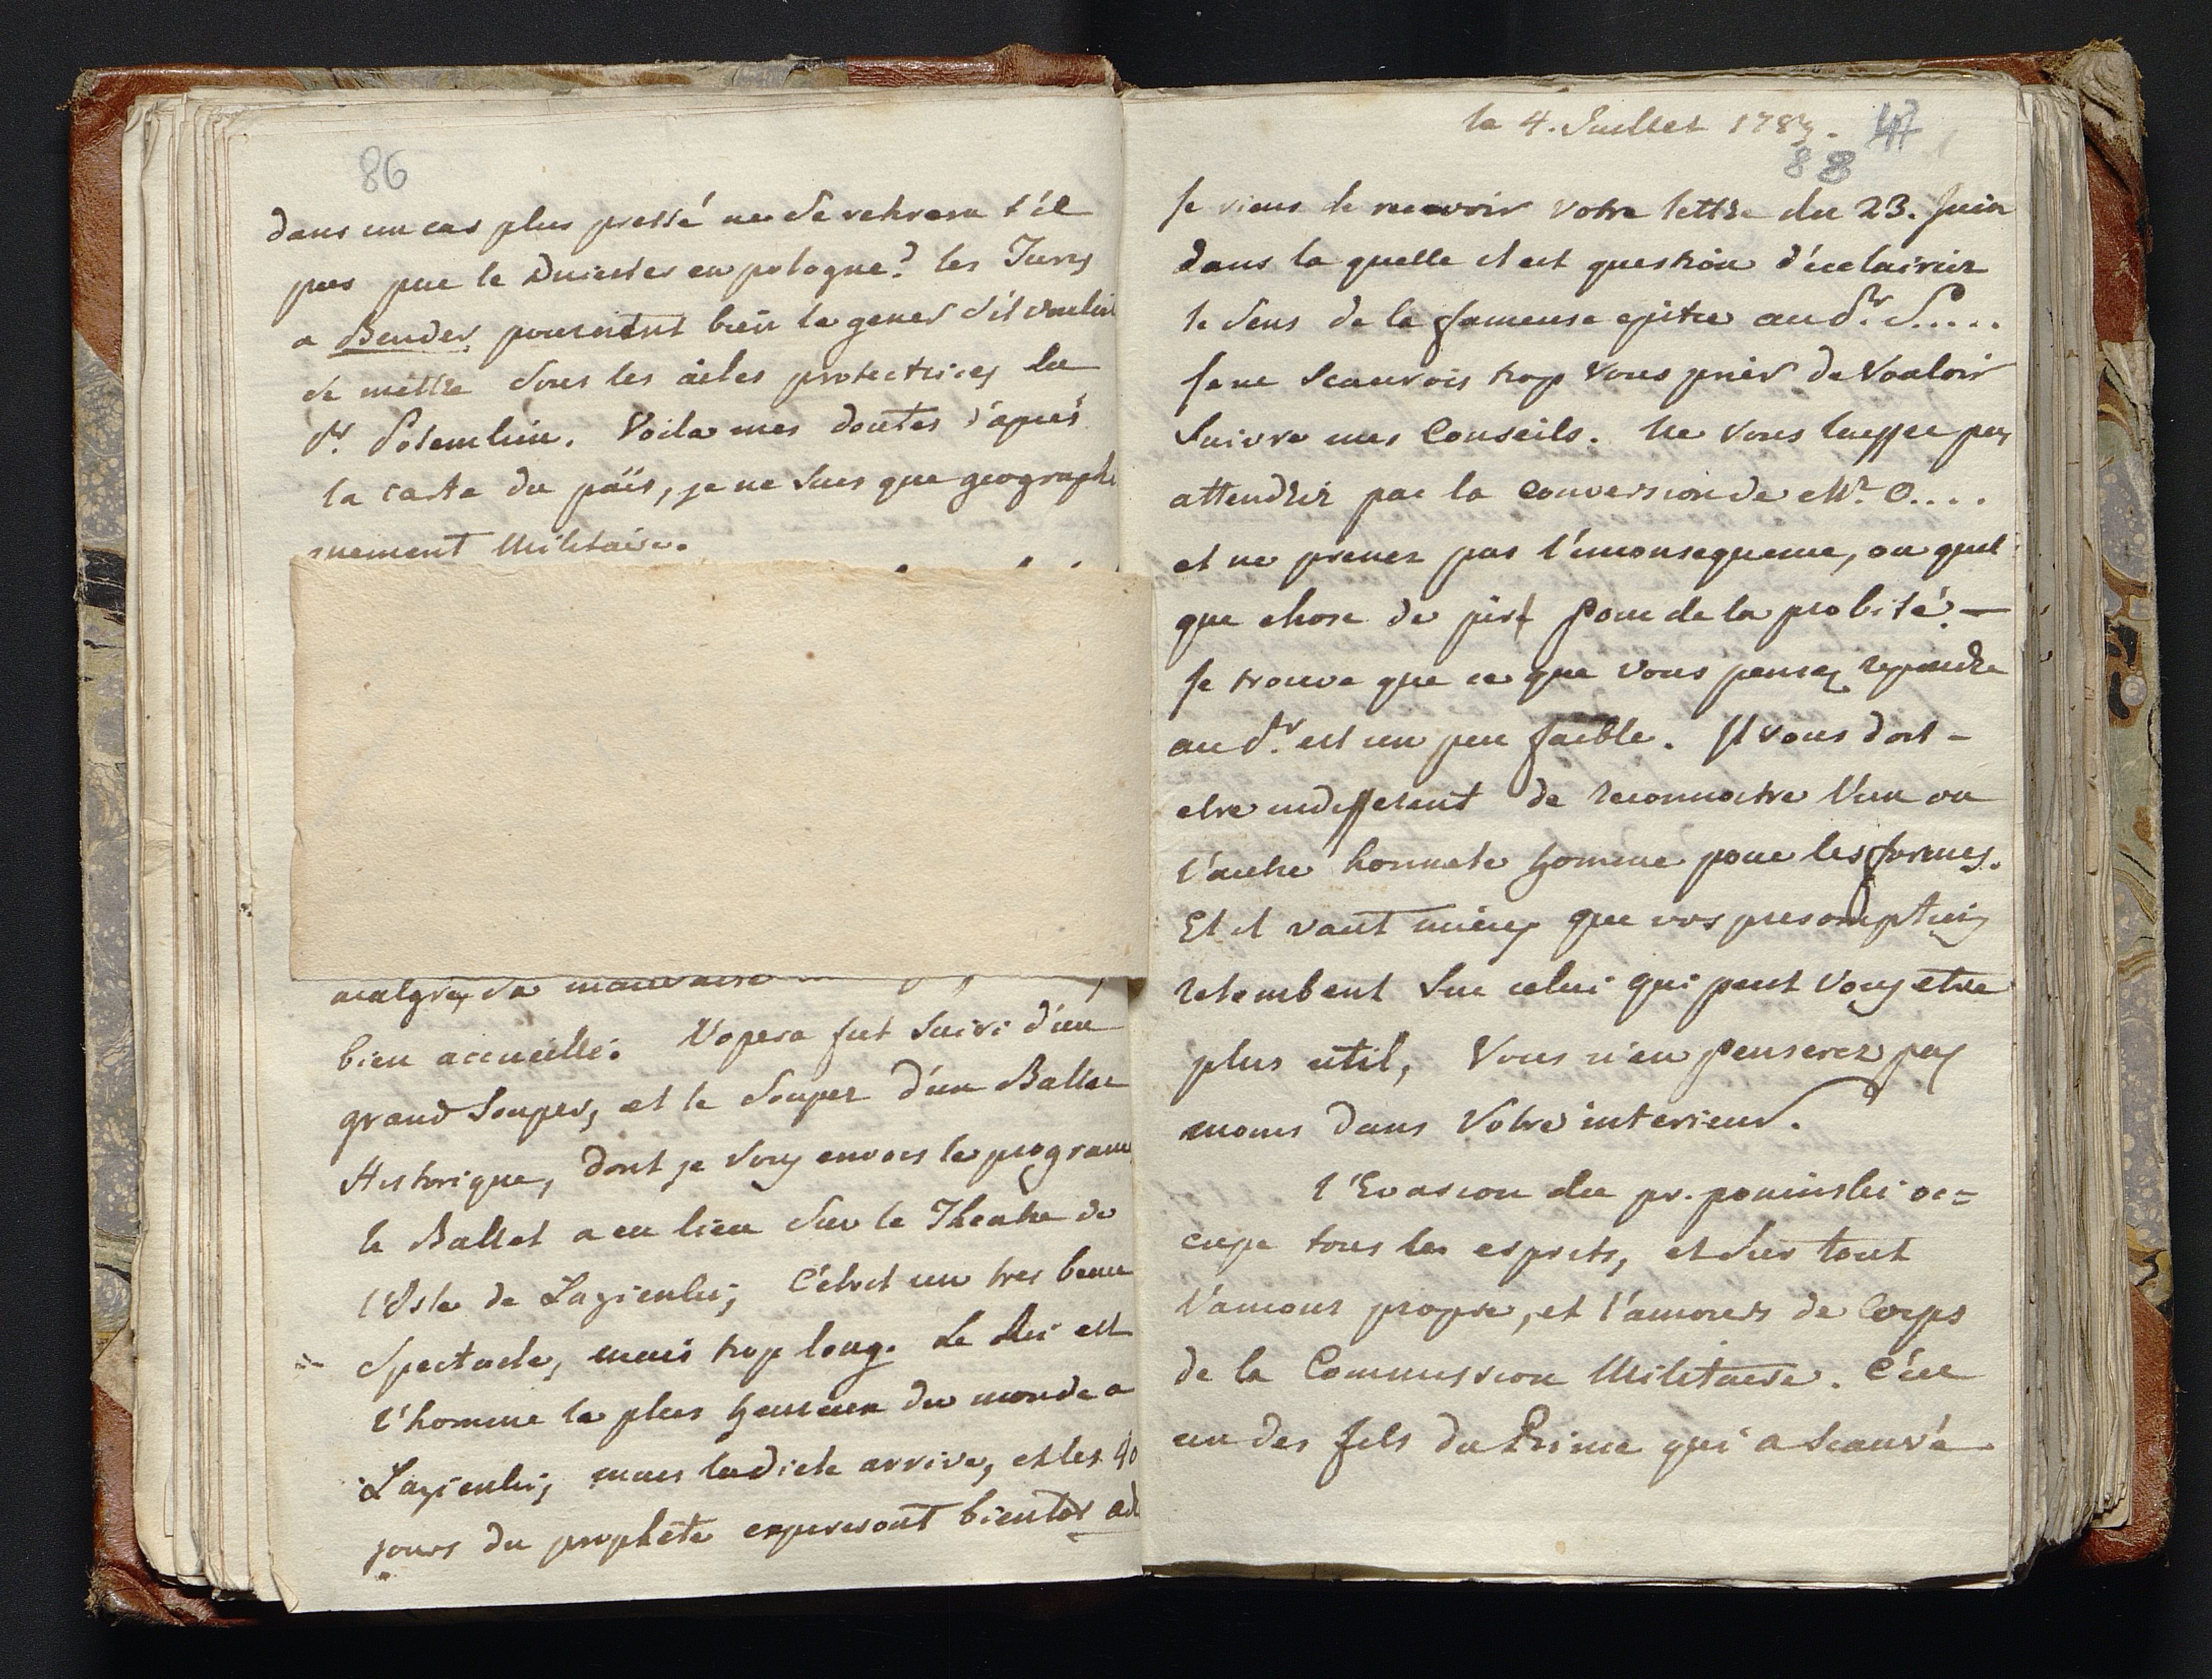 86
dans un cas plus pressé ne se retirera t'il
pas par le Dniester en pologne? les Turcs
a Bender pourroient bien le gener s'il vouloit
se mettre sous les ailes protectrices du
Pr. Potemkin. Voila mes doutes d'apres
la carte du païs, je ne suis que geographi
quement Militaire.
malgré sa mauvaise
bien accueilli. l'opera fut suivi d'un
grand Souper, et le Souper d'un Ballet
Historique, dont je vous envois le program
le Ballet a eu lieu sur le Theatre de
l'Isle de Lazienki; C'étoit un tres beau
Spectacle, mais trop long. Le Roi est
l'homme le plus heureux du monde a
Lazienki; mais la diete arrive, et les 40
jours du prophete expireront bientot
la 4. Juillet 178
47
88
Je viens de recevoir votre lettre du 23. Juin
dans la quelle il est question d'éclaircir
le sens de la fameuse epitre au Pr. P.....
Je ne scaurois trop vous prier de vouloir
suivre mes Conseils. Ne vous laissez pas
attendrir par la Conversion de Mr. O....
et ne prenez pas l'inconsequence, ou quel
que chose de pire pour de la probité. —
Je trouve que ce que vous pensez repondre
au Pr. est un peu faible. Il vous doit -
etre indifferent de reconnoitre l'un ou
l'autre honnete homme pour les formes.
Et il vaut mieux que vos presomptions
retombent sur celui qui peut vous etre
plus util, Vous n'en penserez pas
moins dans Votre interieur.
l'Evasion du pr. poninski oc=
cupe tous les esprits, et sur tout
l'amour propre, et l'amour de Corps
de la Commission Militaire. C'est
un des fils du Prince qui a scauvé